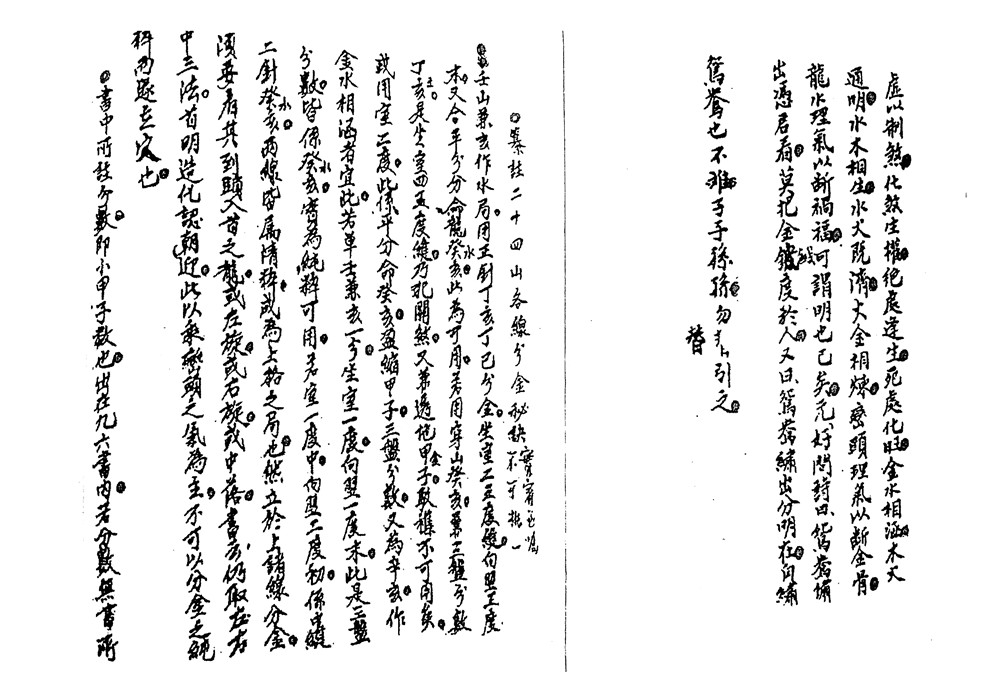 虛以制煞化煞生權絕處逢生死處化旺金水相涵木火
通明水木相生水火既濟火金相煉巒頭理氣以斷金骨
龍水理氣以斷禍福可謂明也已矣元好問詩曰鴛鴦埔
出憑君看莫把金鍼度於人又曰鴛鴦繡出分明在向繡
鴛鴦也不難子子孫孫勿引之
替
纂註二十四山各線分金秘訣
寶存之
不可推一
壬山兼亥作水局用正針丁亥丁巳分金坐室二三度纏向翌五度
末又合平分分命龍癸亥此為可用若用穿山癸亥第三盤分數
水
丁亥是坐室四五度纏乃犯關煞又兼透他甲子數雜不可用矣
土
金
或用室六度此係平分命癸亥盈縮甲子三盤分數又為辛亥作
金水相涵者宜此若單壬兼亥一分坐室一度向翌一度末此是三盤
分數皆係癸亥審為純粹可用若室一度中向翌二度初係中縫
水
二針癸亥兩線皆屬清粹或為上格之局也然立於上諸線分金
水
須要看其到頭入首之龍或左旋或右旋或中落書云仍取左右
中三法首明造化認朝迎此以乘巒頭之氣為主不可以分金之純
粹而遂立穴也
書中所註分數即小甲子數也出在九六書內若分數無書所